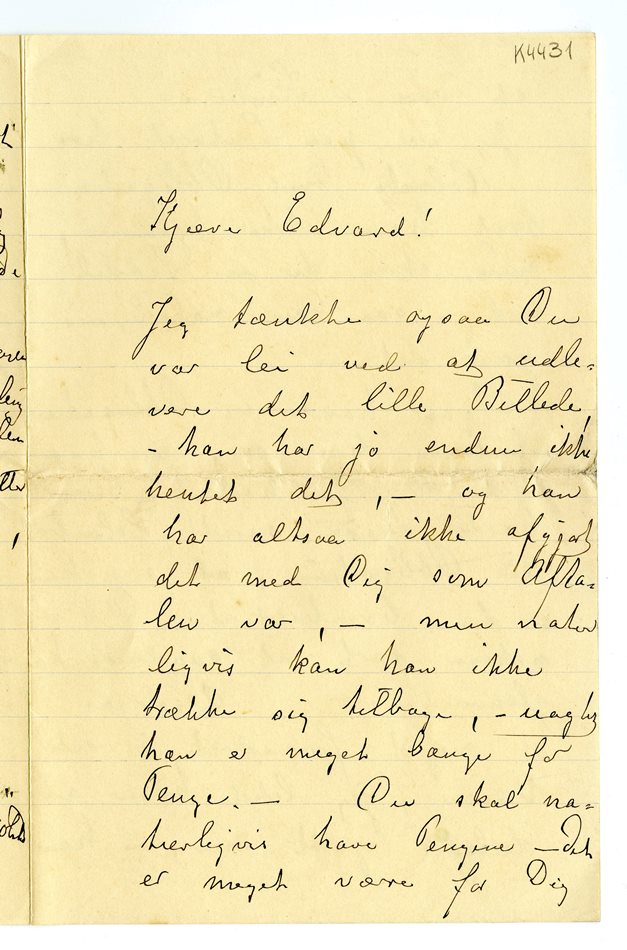 K4431
Kjære Edvard!
Jeg tænkte ogsaa Du
var lei ved at udle-
vere det lille Billede,
- han har jo endnu ikke
hentet det, — og han
har altsaa ikke afgjort
det med Dig som Afta-
len var, — men natur
ligvis kan han ikke
trække sig tilbage, -
han er meget bange for
Penge. — Du skal na-
turligvis have Pengene — det
er meget værre for Dig